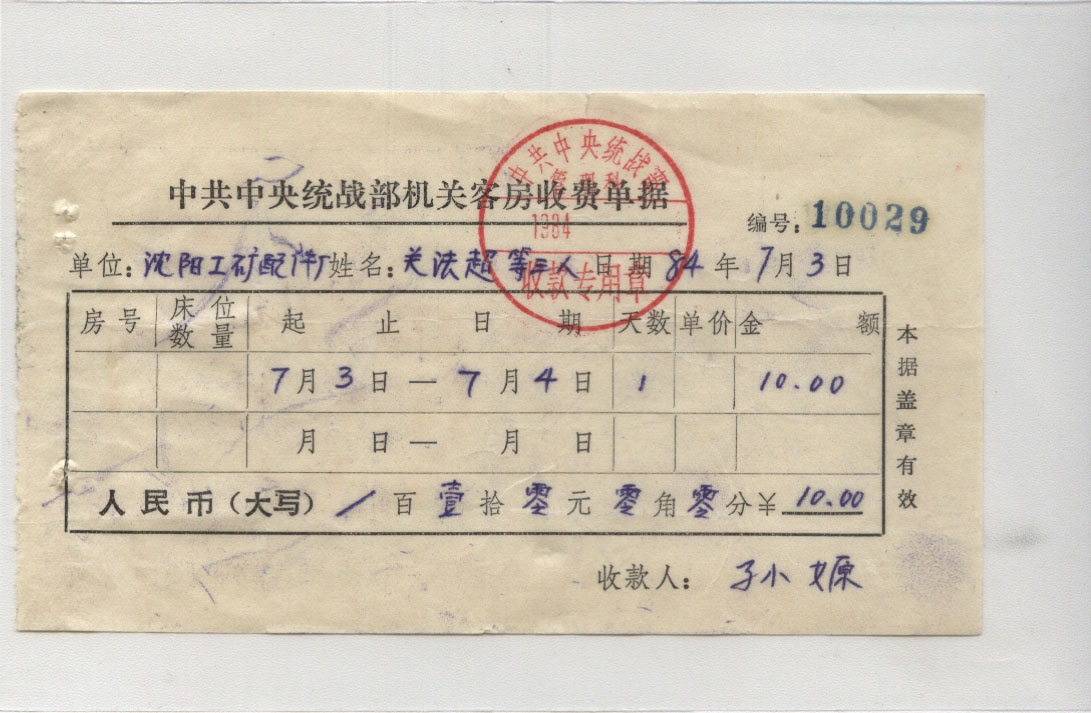 中共中央统战部
管理科
1984
收款专用章
中共中央统战部机关客房收费单据
编号：10029
单位：沈阳工矿配件厂 姓名：关法超等三人 日期 84年7月3日
房号 床位数量 起止日期 天数 单价 金额
7月3日—7月4日 1 10.00
月 日— 月 日
人民币（大写） / 百壹拾零元零角零分 ¥ 10.00
本据盖章有效
收款人：孙小嫄